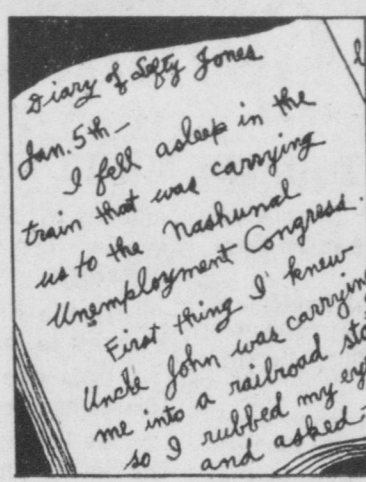 Diary of Lefty Jones
Jan. 5th —
I fell asleep in the
train that was carrying
us to the Nashunal
Unemployment Congress.
First thing I knew
Uncle John was carrying
me into a railroad
so I rubbed my eyes
and asked —